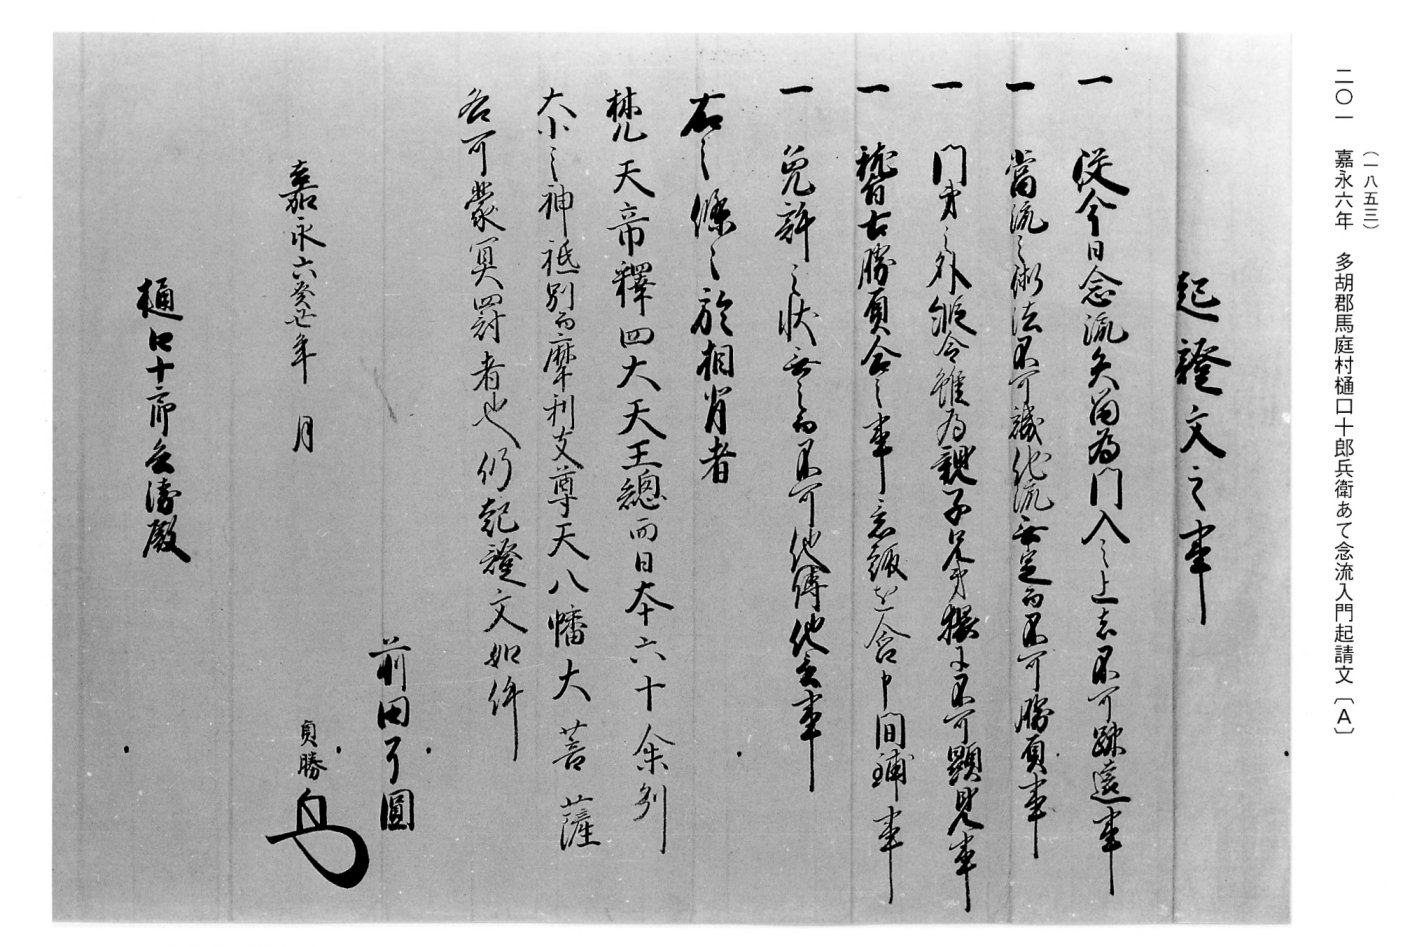 (一八五三)
二〇一 嘉永六年 多胡郡馬庭村樋口十郎兵衛あて念流入門起請文〔A〕
起證文之事
一 従今日念流矢留為門入之上者不可疎遠事
一 當流之術法不可譏他流無定而不可勝負事
一 門弟之外縦令雖為親子兄弟猥ニ不可顕見事
一 稽古勝負合之事意趣を含中間鋪事
一 免許之状無之而不可他傳他言事
右之條々於相背者
梵天帝釋四大天王總而日本六十余列
大小之神祇別而摩利支尊天八幡大菩薩
各可蒙冥罰者也仍起證文如件
前田了圓
貞勝
嘉永六癸丑年 月
樋口十郎兵衛殿